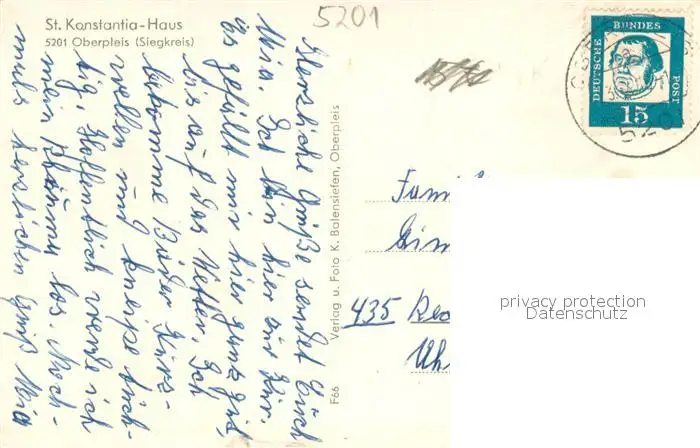 St. Konstantia-Haus
5201 Oberpleis (Siegkreis)
5201
DEUTSCHE BUNDESPOST
15
520
Herzliche Grüße sendet Euch
Mia. Ich bin hier zur Kur.
Es gefällt mir hier ganz gut,
bis auf das Wetter. Ich
bekomme Bäder Kurz-
wellen und kneipe tüch-
tig. Hoffentlich werde ich
mein Rheuma los. Noch-
mals herzlichen Gruß Mia
Verlag u. Foto K. Balensiefen, Oberpleis
F66
Fami
435 Reo
Uh
privacy protection
Datenschutz